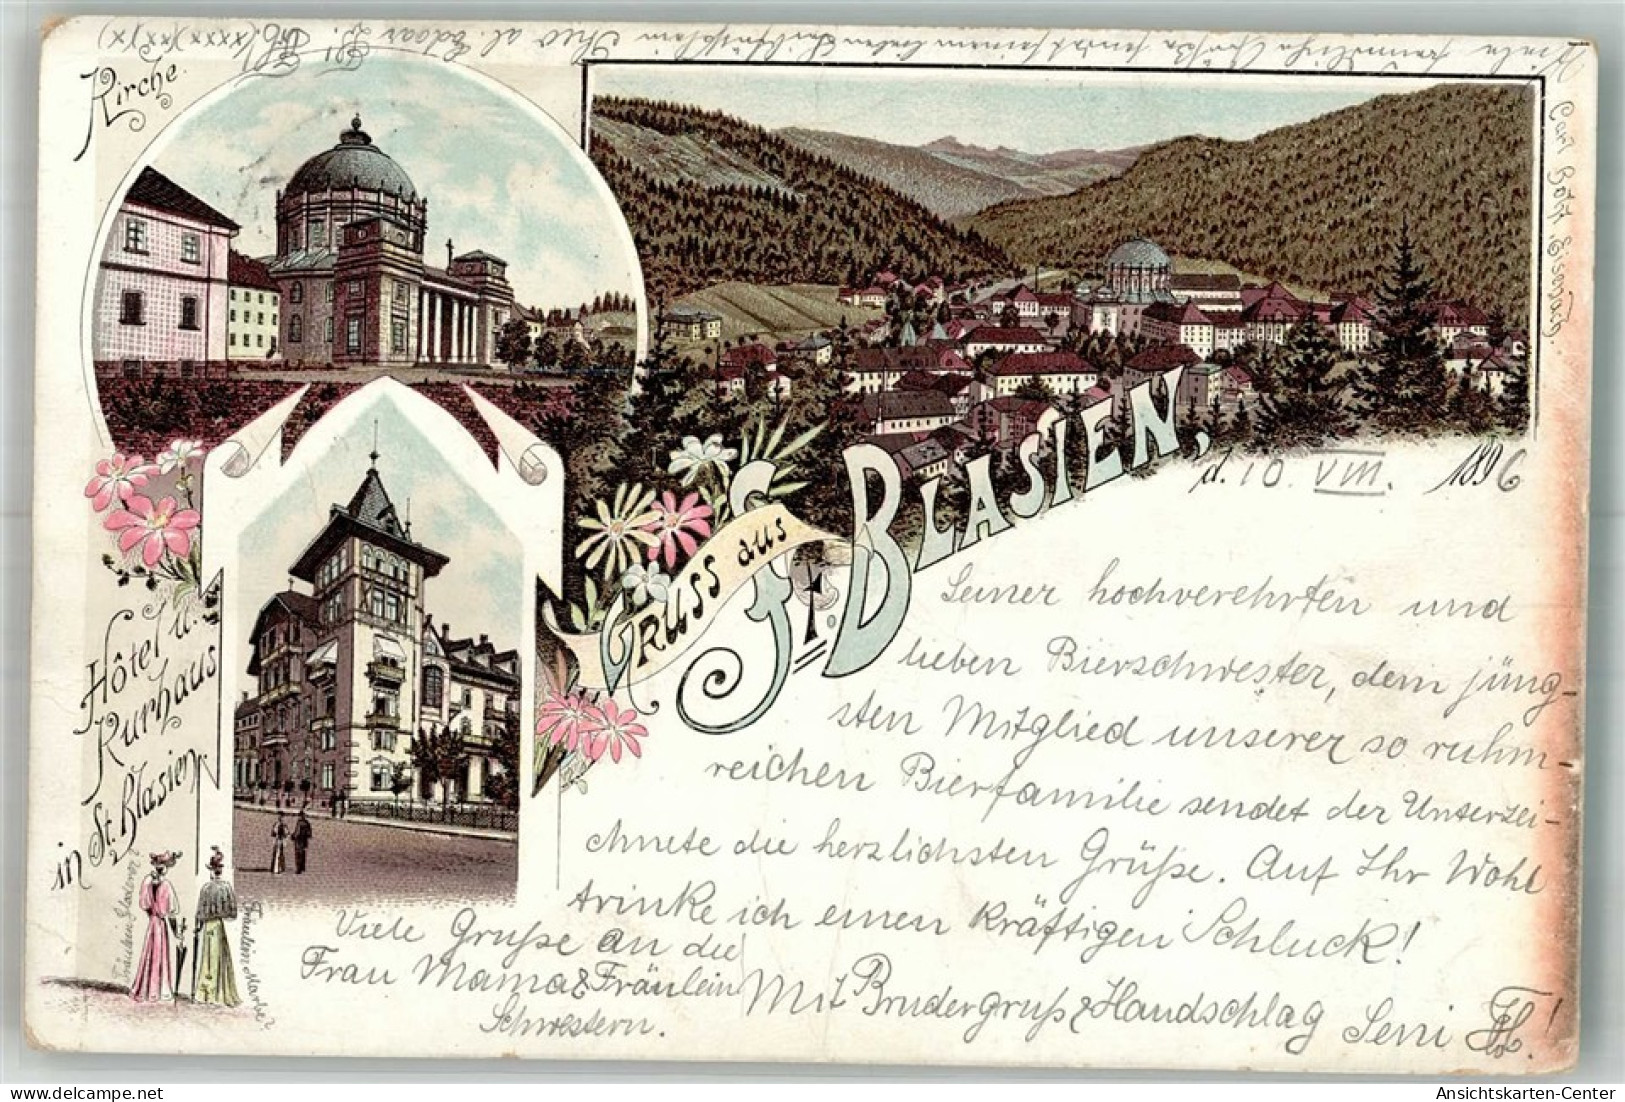 Kirche.
Gruss aus
St. Blasien,
d. 10. VIII. 1896
Seiner hochverehrten und
lieben Bierschwester, dem jüng-
sten Mitglied unserer so ruhm-
reichen Bierfamilie sendet der Unterzei-
chnete die herzlichsten Grüße. Auf Ihr Wohl
trinke ich einen kräftigen Schluck!
Mit Brudergruß & Handschlag
Viele Grüße an die
Frau Mama & Fräulein
Schwestern.
Hôtel u.
Kurhaus
in St. Blasien
Fräulein
Fräulein
Carl
Ansichtskarten-Center